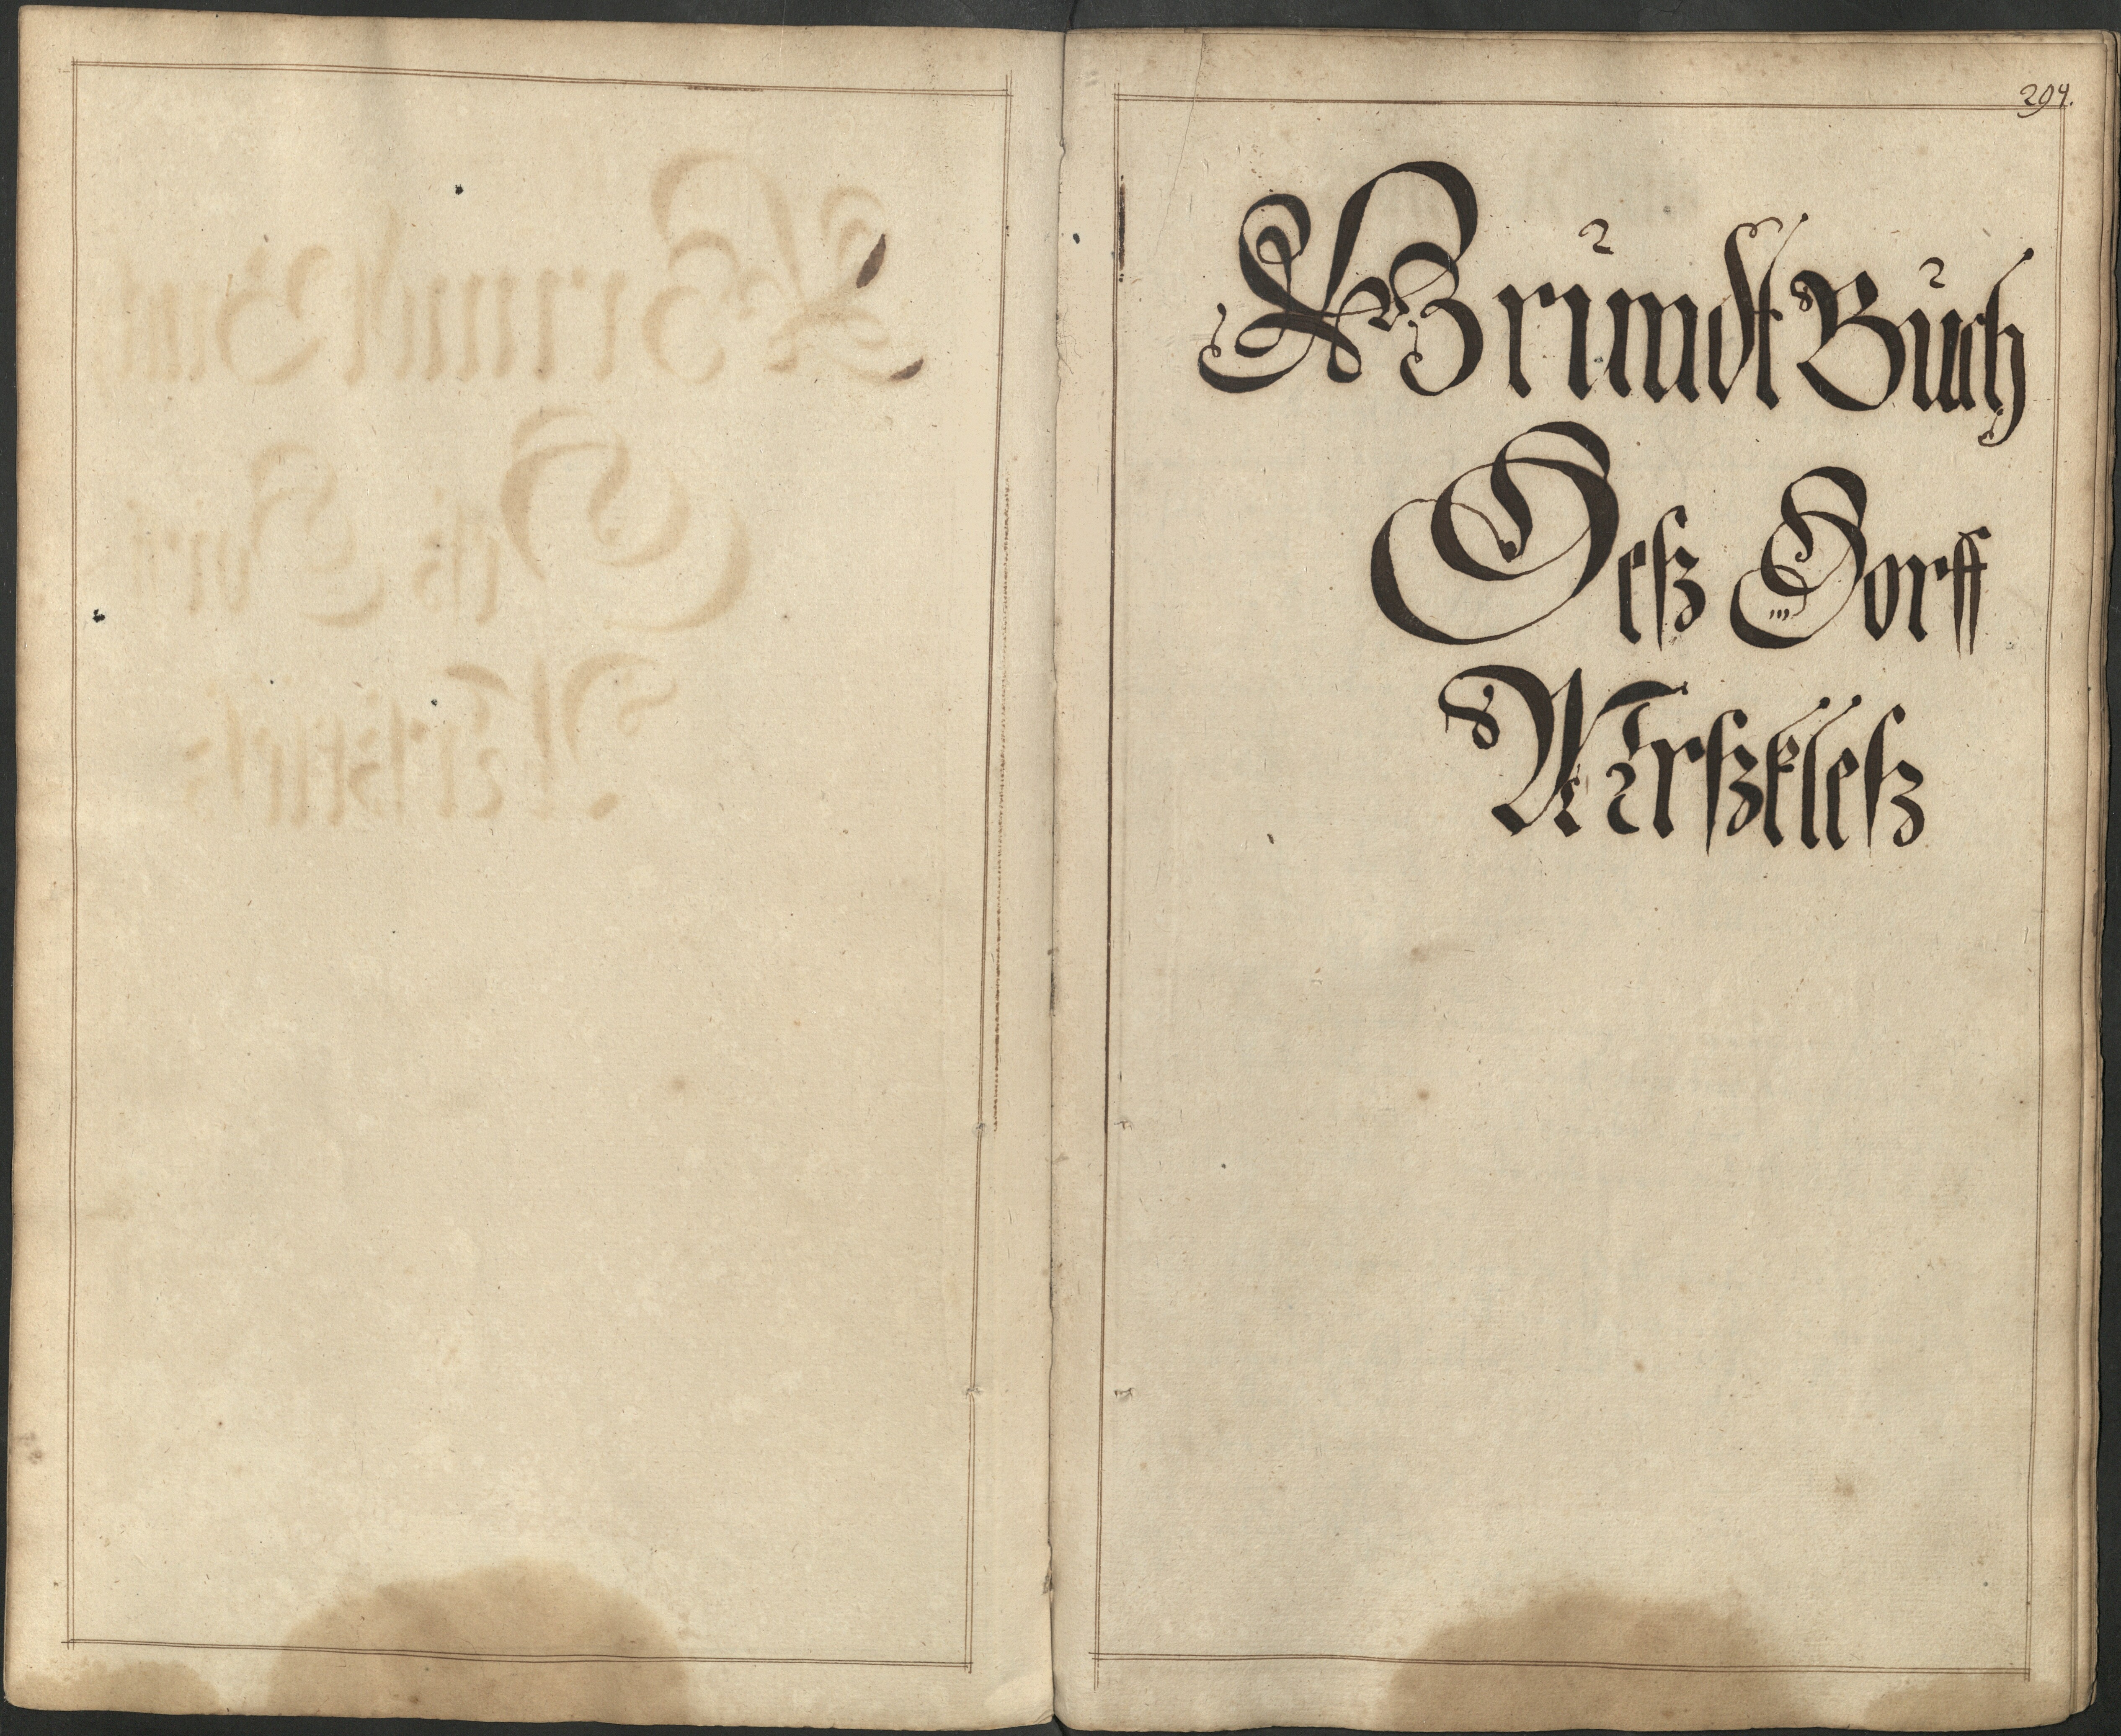 294.
Grundt Buch
Deß Dorff
Mirßkleß